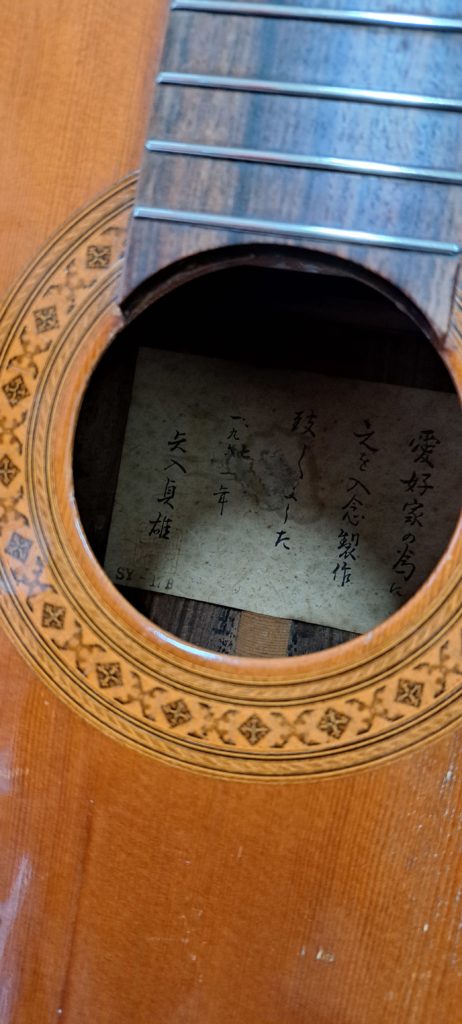 愛好家の為に
之を入念製作
致しました
一九七一年
矢入貞雄